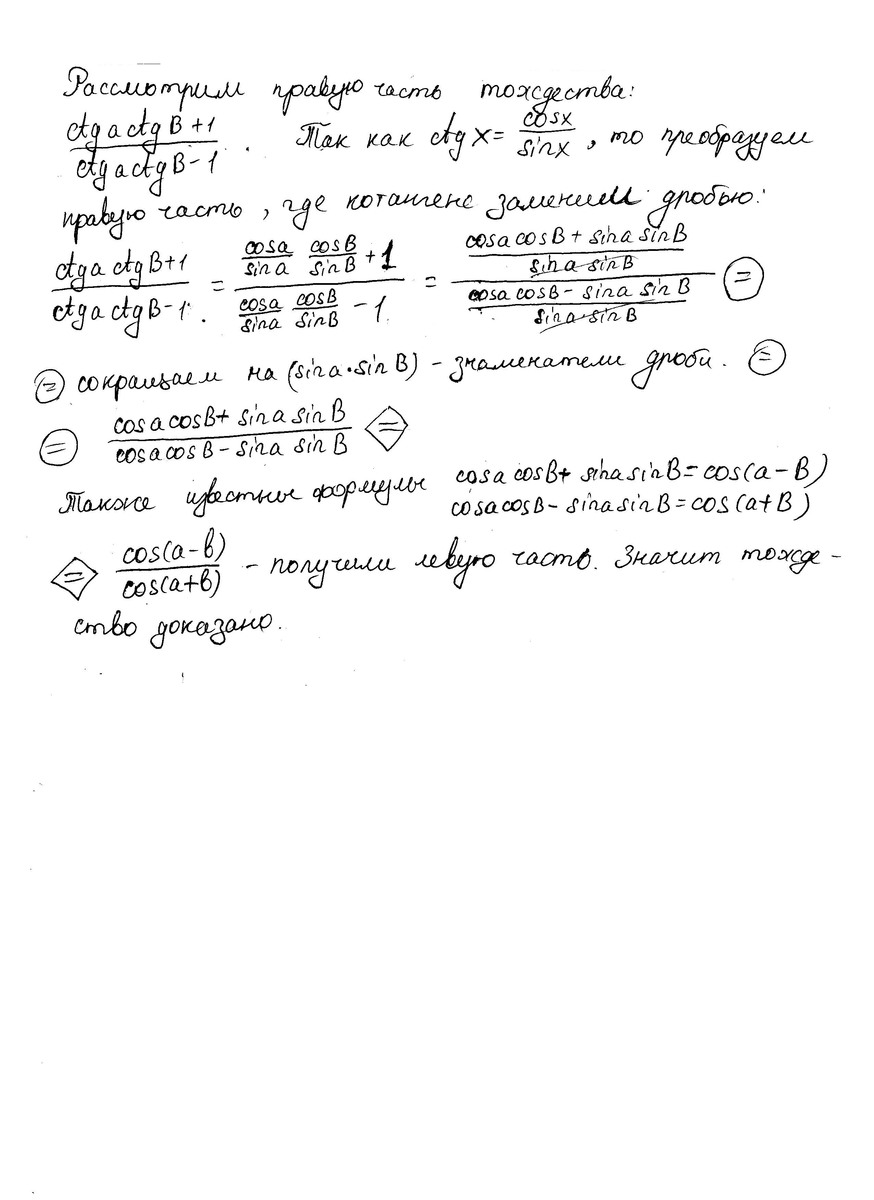 Рассмотрим правую часть тождества:
ctg a ctg B + 1 / ctg a ctg B - 1 . Так как ctg x = cosx / sinx , то преобразуем
правую часть, где котангенс заменим дробью:
ctg a ctg B + 1 / ctg a ctg B - 1 . = (cosa / sina cosB / sinB + 1) / (cosa / sina cosB / sinB - 1) = ((cosa cosB + sina sinB) / (sina sinB)) / ((cosa cosB - sina sinB) / (sina·sinB)) =
= сокращаем на (sina·sinB) - знаменатели дроби. =
= cosa cosB + sina sinB / cosa cosB - sina sinB =
Также известны формулы cosa cosB + sina sinB = cos(a - B)
cosa cosB - sina sinB = cos(a + B)
= cos(a - b) / cos(a + b) - получили левую часть. Значит тожде-
ство доказано.